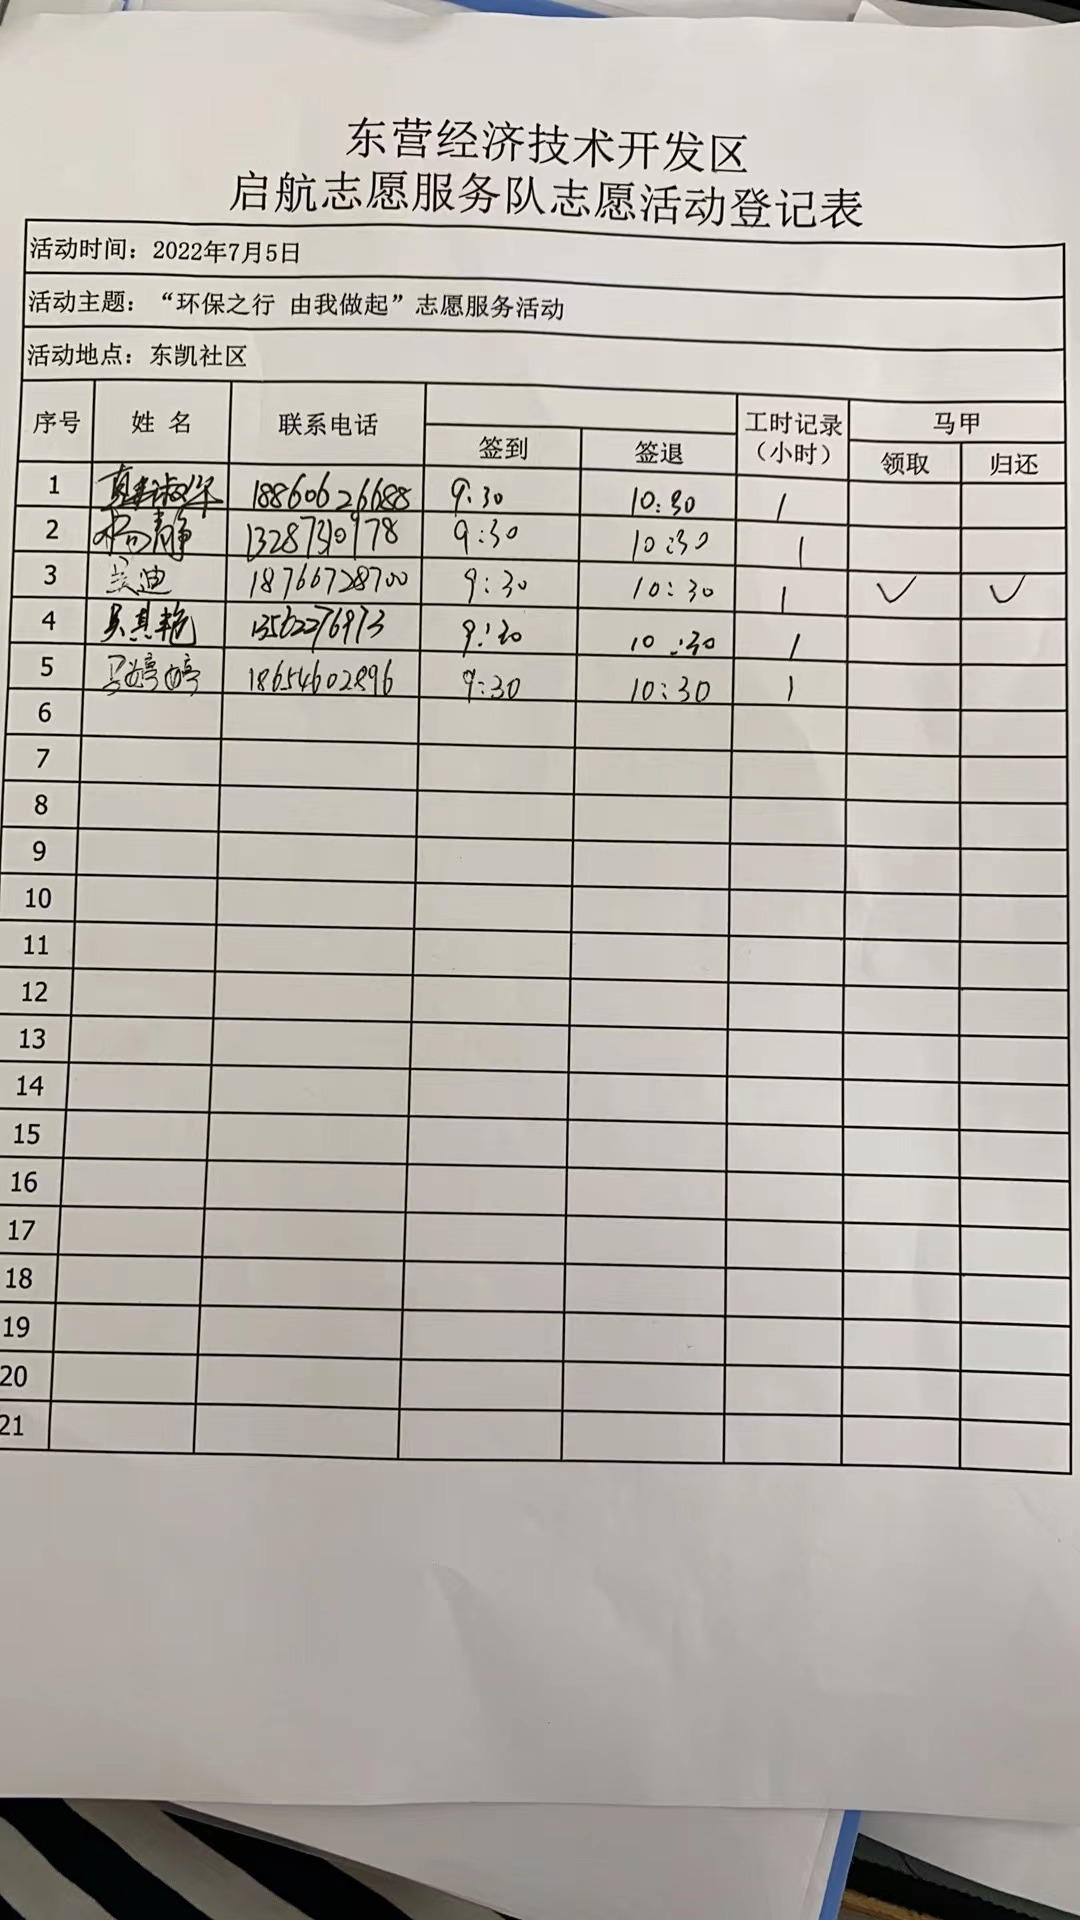 东营经济技术开发区
启航志愿服务队志愿活动登记表
活动时间：2022年7月5日
活动主题：“环保之行 由我做起”志愿服务活动
活动地点：东凯社区
序号 姓名 联系电话 签到 签退 工时记录（小时） 马甲 领取 归还
1 18860626688 9:30 10:30 1
2 杨静 13287310978 9:30 10:30 1
3 兰迪 18766728700 9:30 10:30 1 ✓ ✓
4 吴真艳 13562276973 9:30 10:30 1
5 马婷婷 18654602896 9:30 10:30 1
6
7
8
9
10
11
12
13
14
15
16
17
18
19
20
21